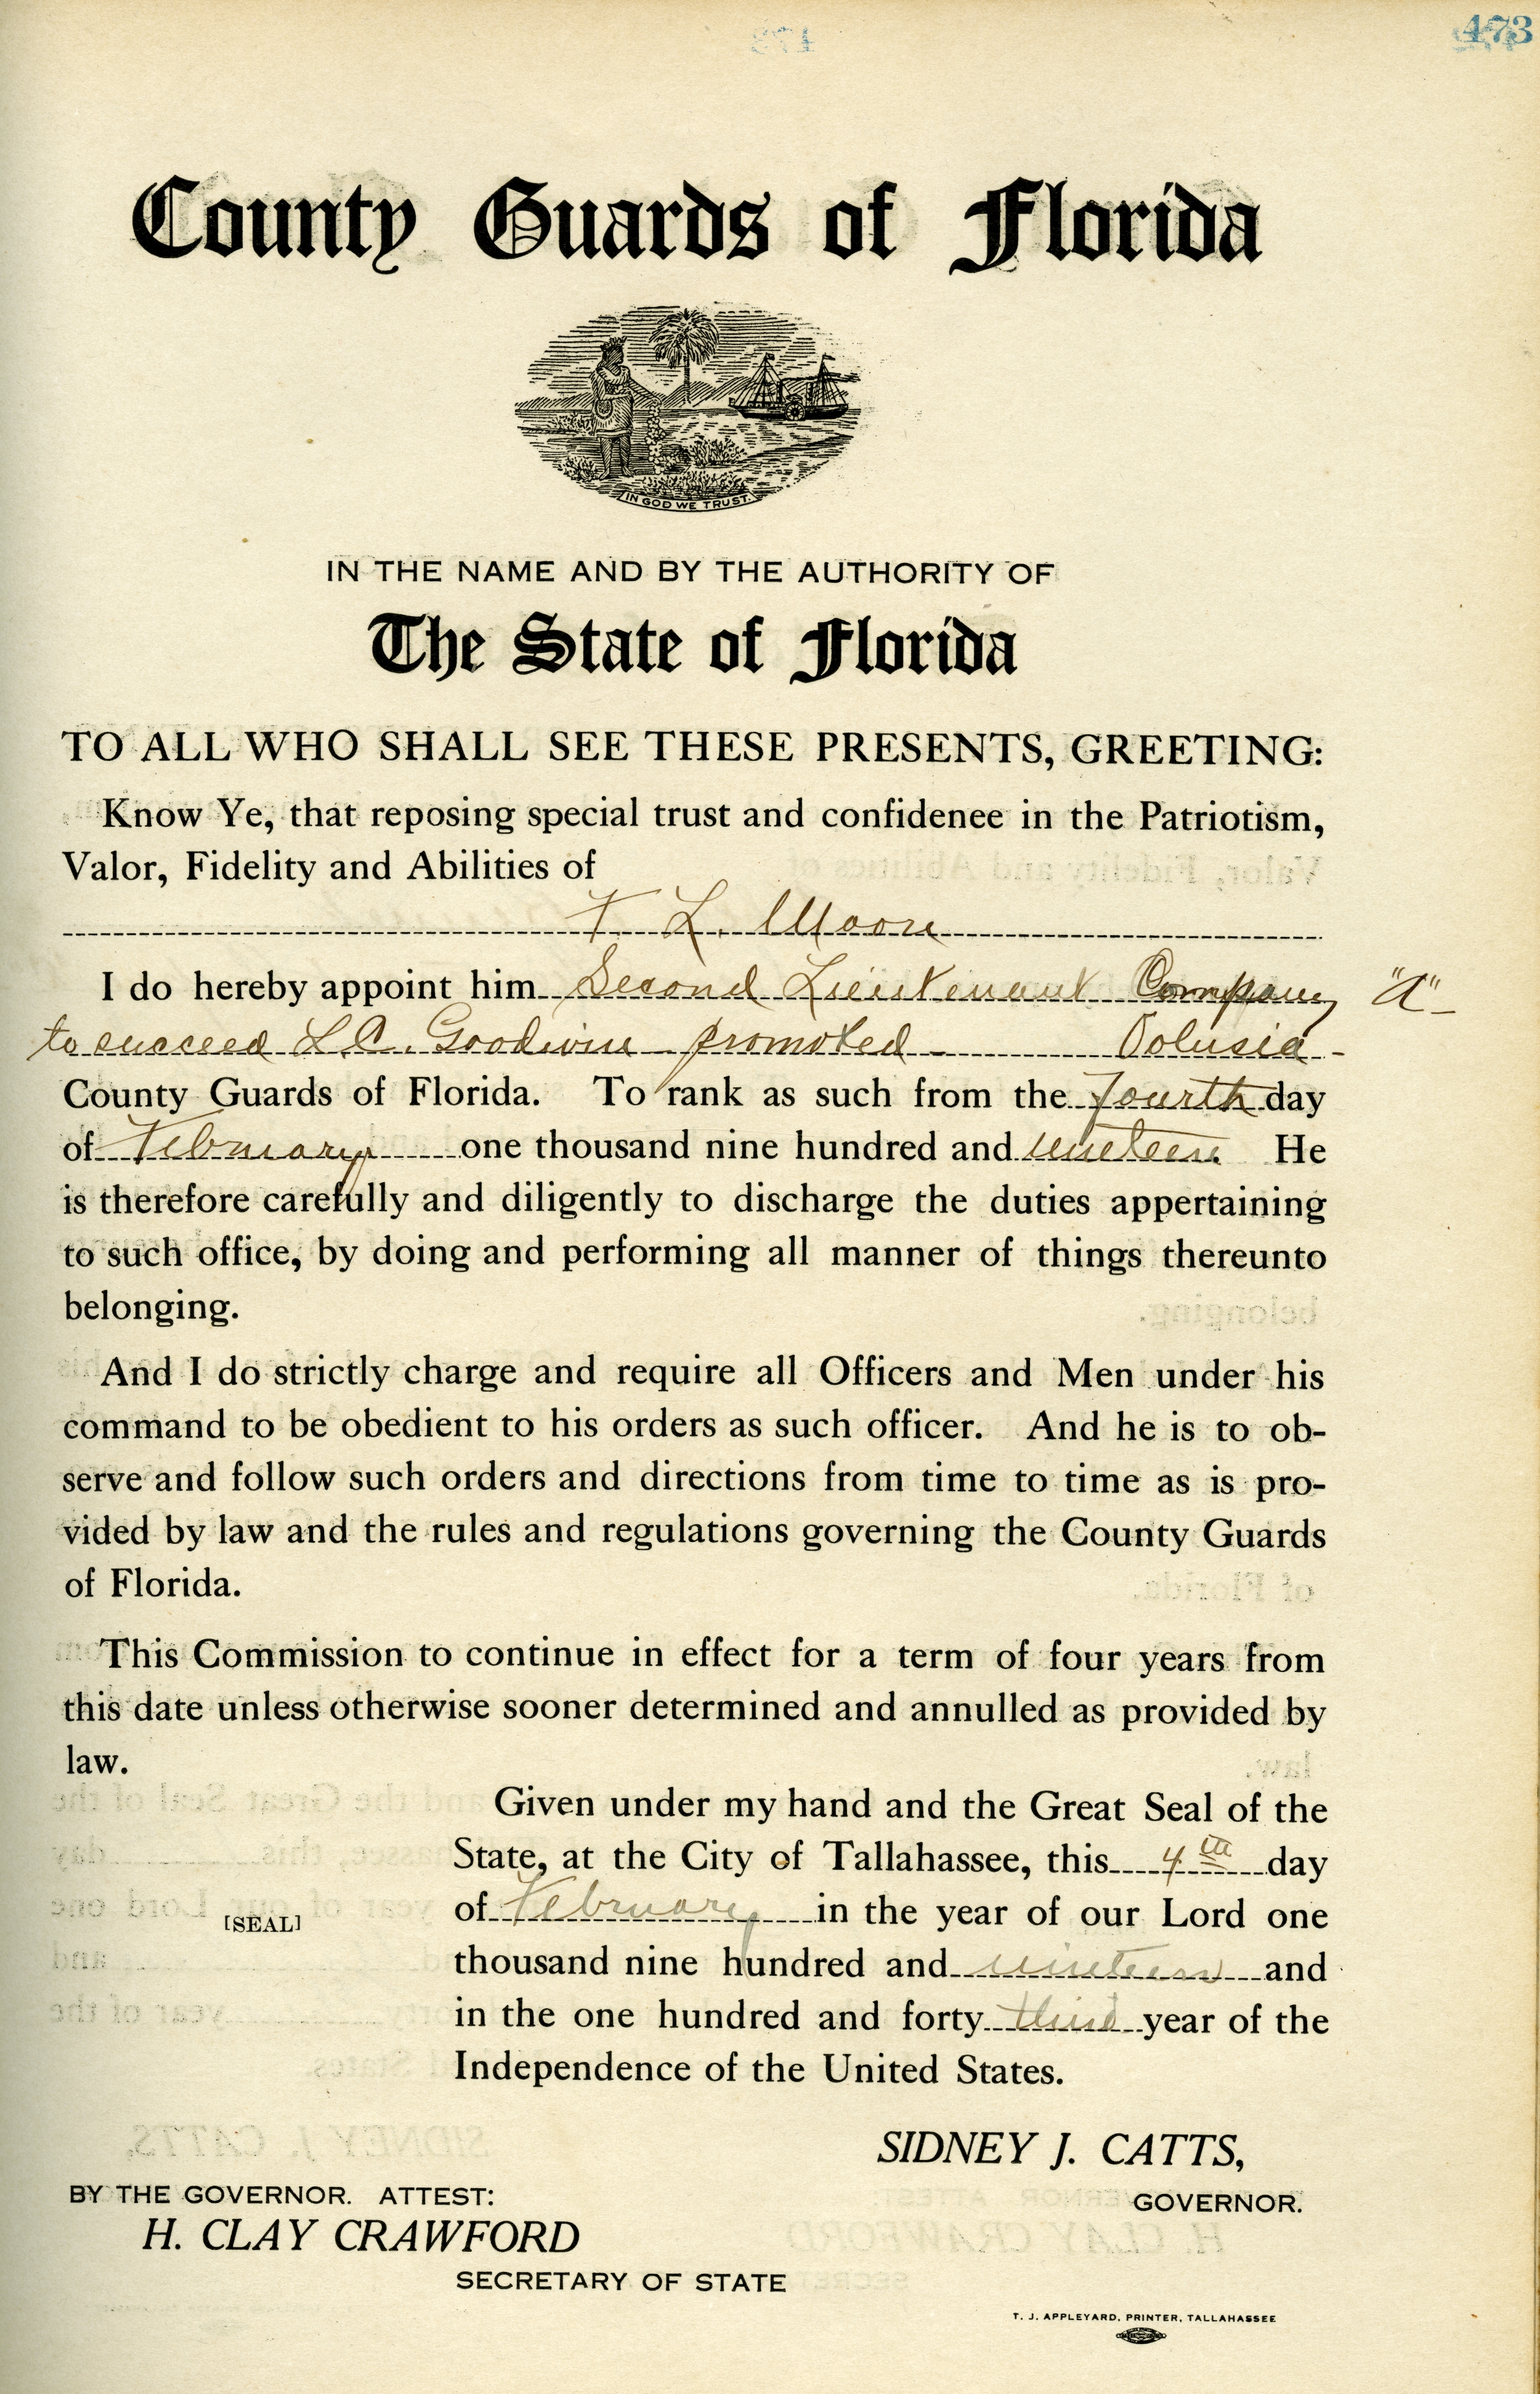 473
County Guards of Florida
IN GOD WE TRUST.
IN THE NAME AND BY THE AUTHORITY OF
The State of Florida
TO ALL WHO SHALL SEE THESE PRESENTS, GREETING:
Know Ye, that reposing special trust and confidenee in the Patriotism,
Valor, Fidelity and Abilities of
T. L. Moore
I do hereby appoint him Second Lieutenant Company "A"
to succeed L.C. Goodwin promoted Volusia
County Guards of Florida. To rank as such from the fourth day
of February one thousand nine hundred and nineteen He
is therefore carefully and diligently to discharge the duties appertaining
to such office, by doing and performing all manner of things thereunto
belonging.
And I do strictly charge and require all Officers and Men under his
command to be obedient to his orders as such officer. And he is to ob-
serve and follow such orders and directions from time to time as is pro-
vided by law and the rules and regulations governing the County Guards
of Florida.
This Commission to continue in effect for a term of four years from
this date unless otherwise sooner determined and annulled as provided by
law.
Given under my hand and the Great Seal of the
State, at the City of Tallahassee, this 4th day
of February in the year of our Lord one
[SEAL]
thousand nine hundred and nineteen and
in the one hundred and forty third year of the
Independence of the United States.
SIDNEY J. CATTS,
GOVERNOR.
BY THE GOVERNOR. ATTEST:
H. CLAY CRAWFORD
SECRETARY OF STATE
T. J. APPLEYARD, PRINTER, TALLAHASSEE